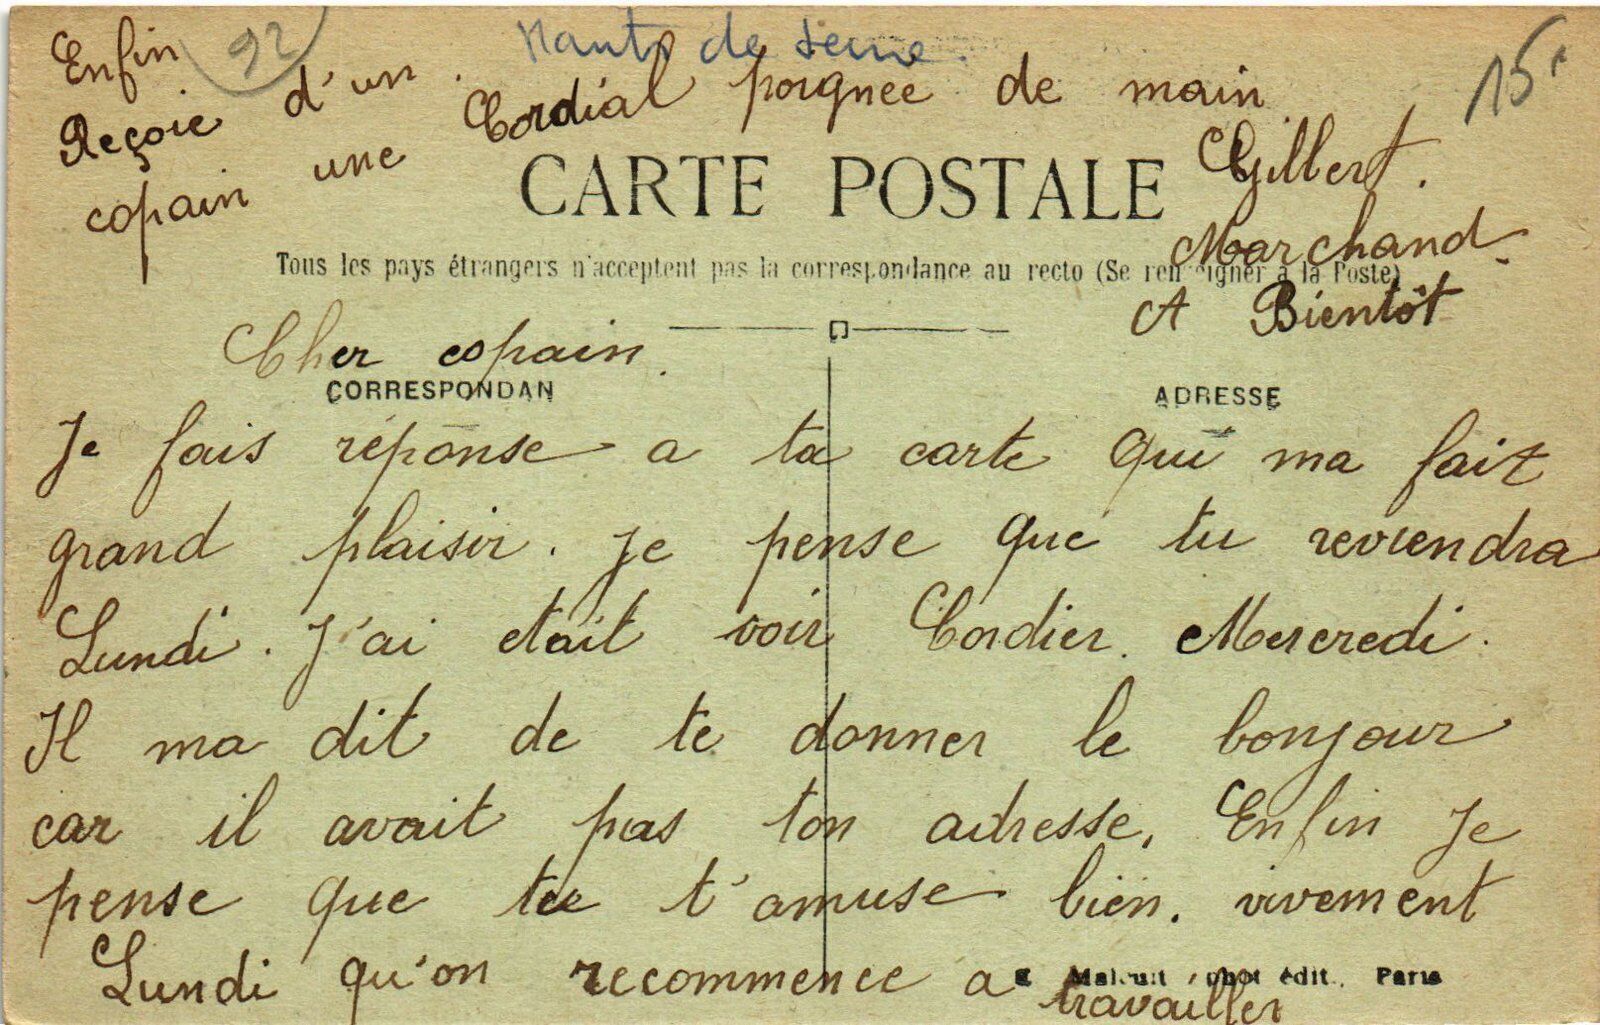 92
Hauts de Seine.
15
Enfin
Reçoie d'un
copain une Cordial poignee de main
Gilbert.
Marchand.
A Bientôt
CARTE POSTALE
Tous les pays étrangers n'acceptent pas la correspondance au recto (Se renseigner à la Poste)
Cher copain.
CORRESPONDAN
ADRESSE
Je fais réponse a ta carte qui ma fait
grand plaisir. Je pense que tu reviendra
Lundi. J'ai etait voir Cordier. Mercredi.
Il ma dit de te donner le bonjour
car il avait pas ton adresse. Enfin Je
pense que tu t'amuse bien. vivement
Lundi qu'on recommence a travailler
phot édit., Paris